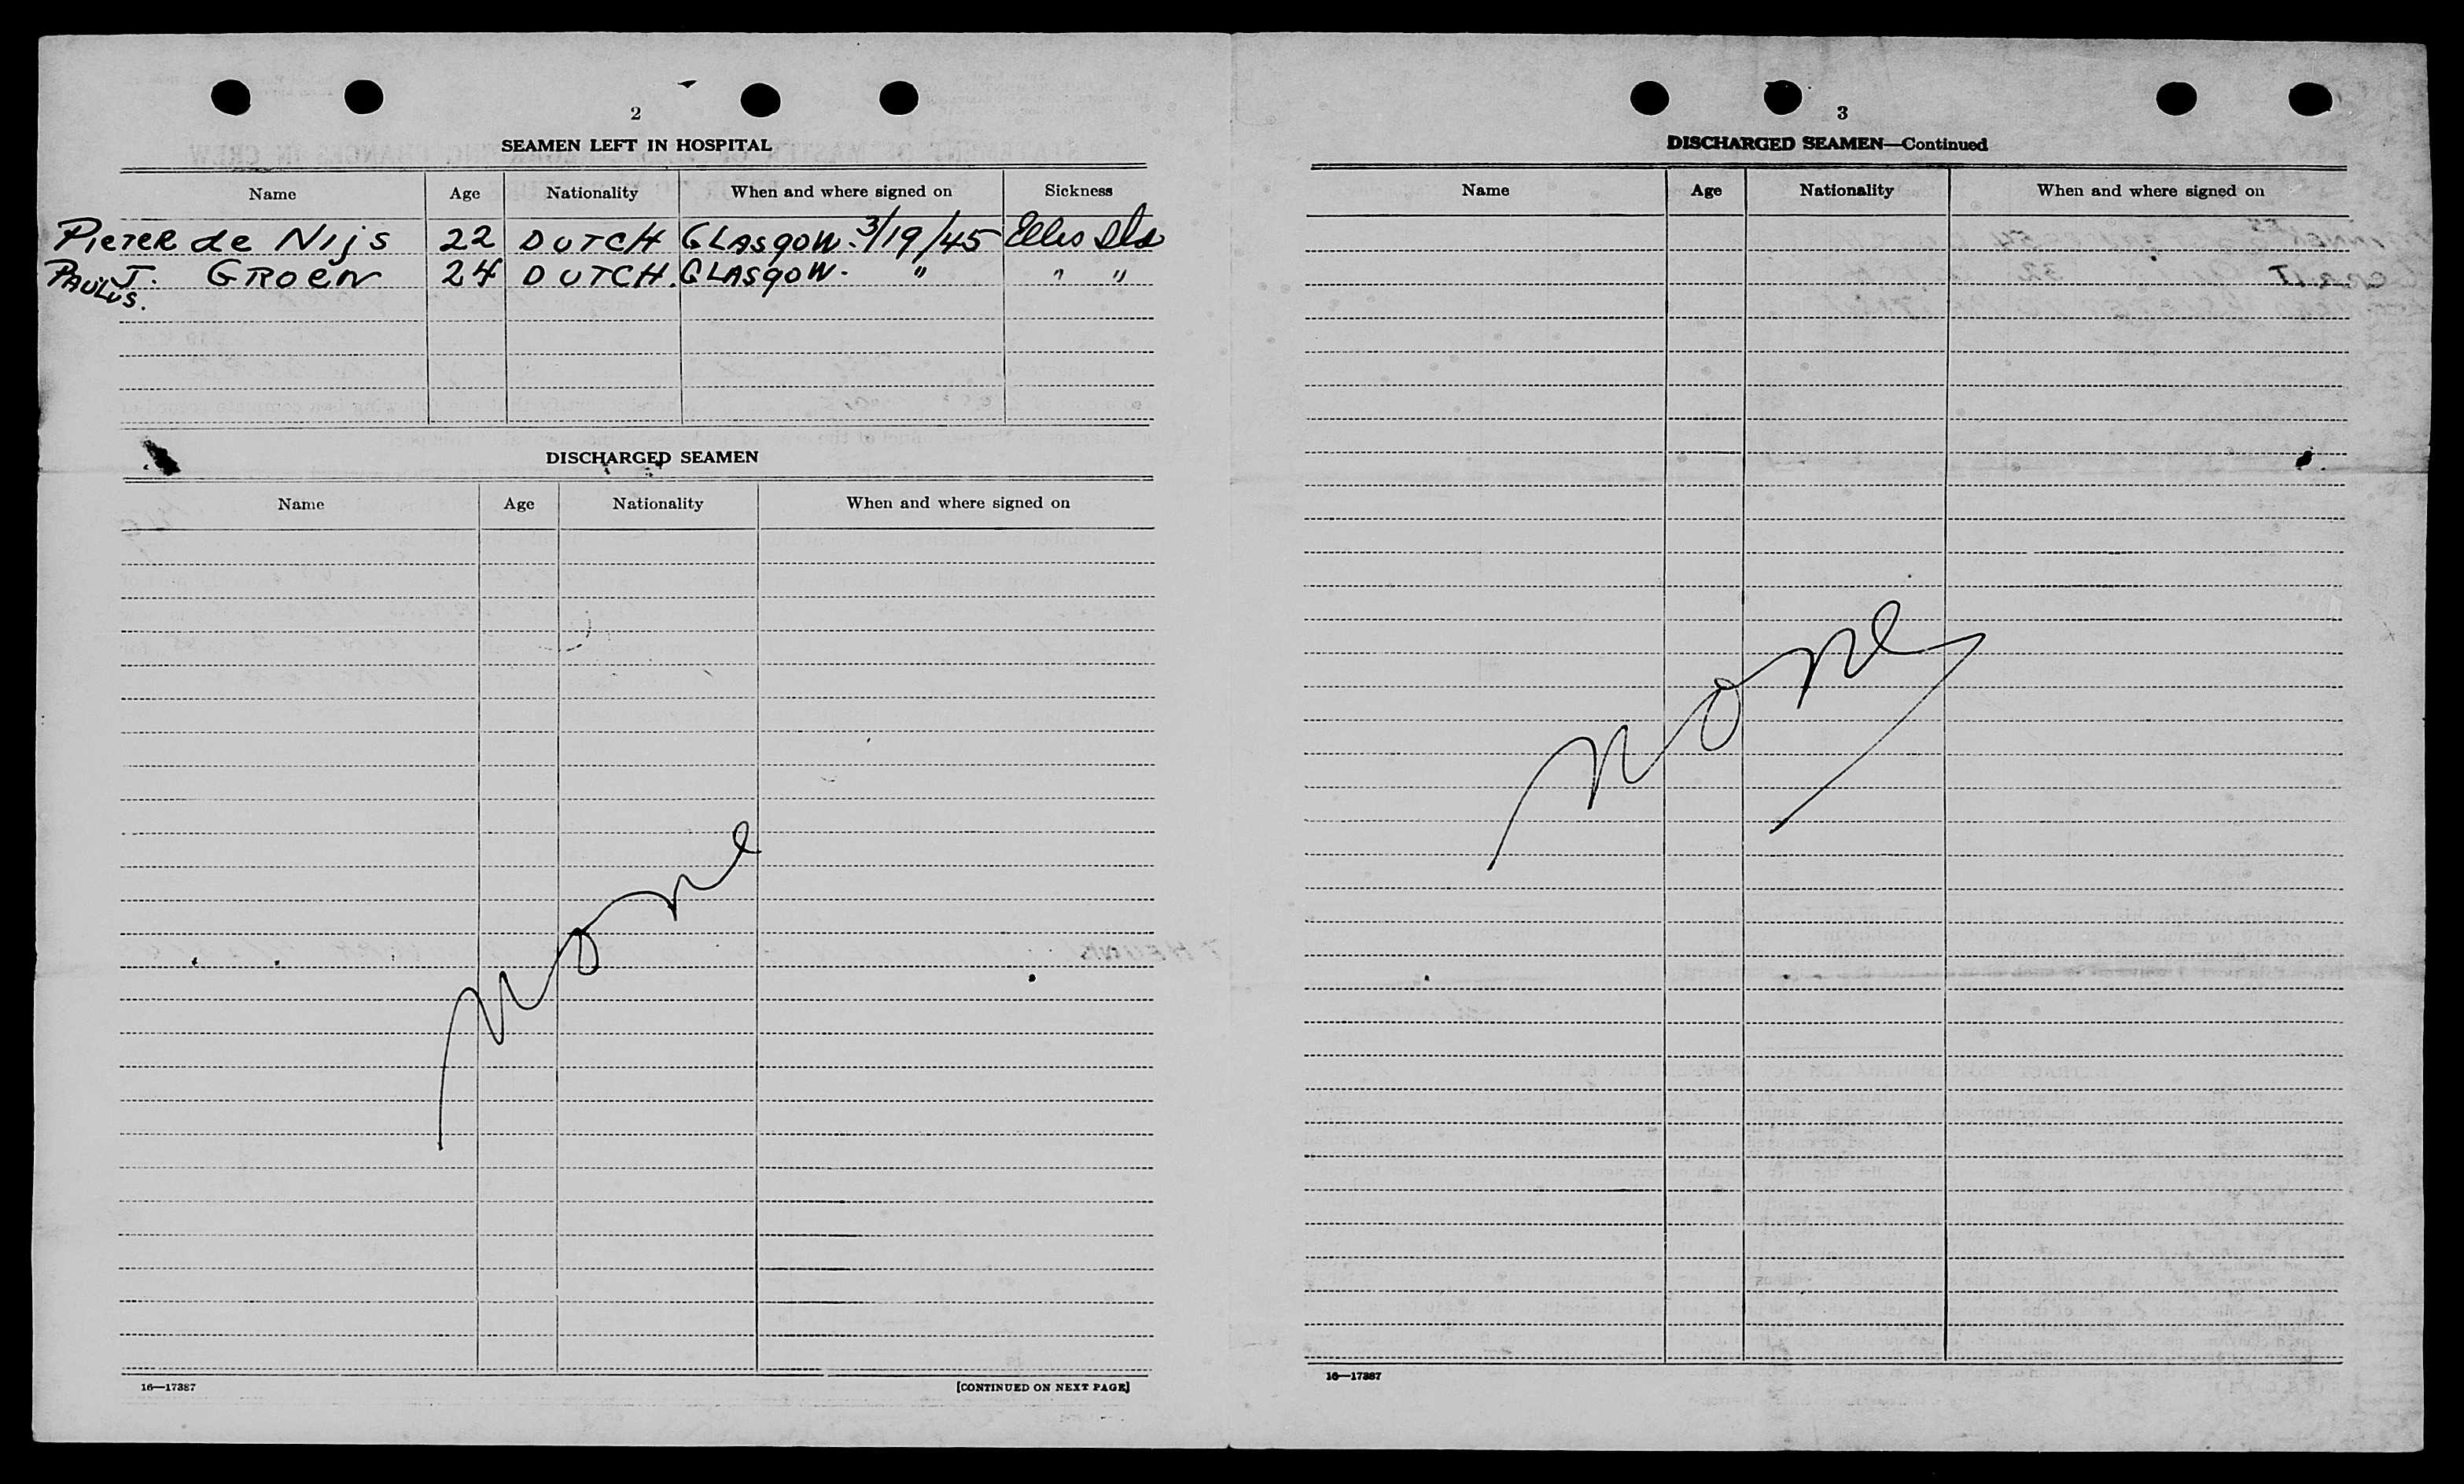 2
SEAMEN LEFT IN HOSPITAL
Name Age Nationality When and where signed on Sickness
PIETER de Nijs 22 DUTCH GLASgOW. 3/19/45 Ellis Isld
PAULUS. J. GROEN 24 DUTCH. GLASgOW. " " "
DISCHARGED SEAMEN
Name Age Nationality When and where signed on
None
16—17387 [CONTINUED ON NEXT PAGE]
3
DISCHARGED SEAMEN—Continued
Name Age Nationality When and where signed on
None
16—17387